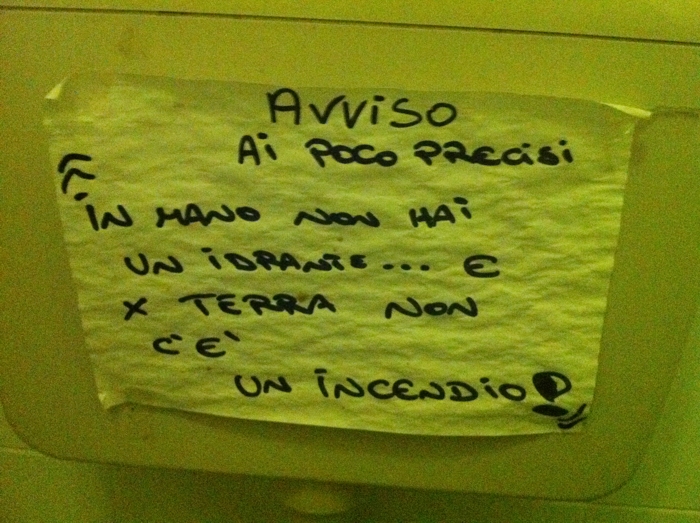 AVViSO
Ai POCO PRECiSi
“
iN MANO NON HAi
UN iDRANTE... E
X TERRA NON
C'E'
UN iNCENDiO!
”